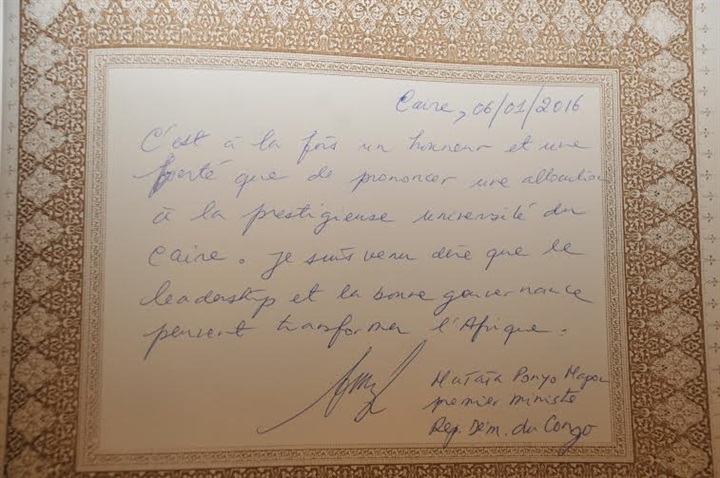 Caire, 06/01/2016
C'est à la fois un honneur et une
fierté que de prononcer une allocution
à la prestigieuse université du
Caire. Je suis venu dire que le
leadership et la bonne gouvernance
peuvent transformer l'Afrique.
Matata Ponyo Mapon
premier ministre
Rép. Dém. du Congo